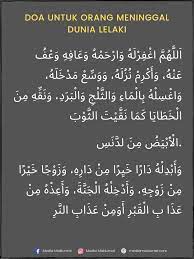 DOA UNTUK ORANG MENINGGAL
DUNIA LELAKI
اَللَّهُمَّ اغْفِرْلَهُ وَارْحَمْهُ وَعَافِهِ وَعْفُ
عَنْهُ، وَأَكْرِمْ نُزُلَهُ، وَوَسِّعْ مَدْخَلَهُ،
وَاغْسِلْهُ بِالْمَاءِ وَالثَّلْجِ وَالْبَرَدِ، وَنَقِّهِ مِنَ
الْخَطَايَا كَمَا نَقَّيْتَ الثَّوْبَ
الْأَبْيَضُ مِنَ لدَّنَسِ.
وَأَبْدِلْهُ دَارًا خَيْرًا مِنْ دَارِهِ، وَزَوْجًا خَيْرًا
مِنْ زَوْجِهِ، وَأَدْخِلْهُ الْجَنَّةَ، وَأَعِذْهُ مِنْ
عَذَا بِ الْقَبْرِ أَوْمِنْ عَذَابِ النَّرِ
Media Maklumat
Media Maklumat